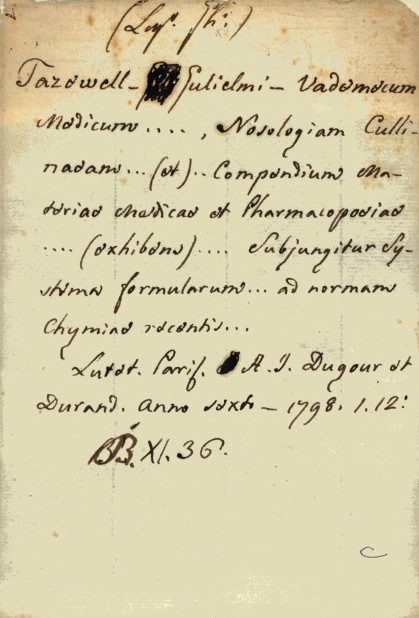 Tazewell - Gulielmi - Vademecum
Medicum ...., Nosologiam Culli-
neam... (et).. Compendium Ma-
teriae Medicae et Pharmacopoeiae
.... (exhibens).... Subjungitur Sy-
stema formularum... ad normam
Chymiae recentis...
Lutet. Paris. A. J. Dugour et
Durand. Anno sexto - 1798. 1.12:
XI. 36.
C